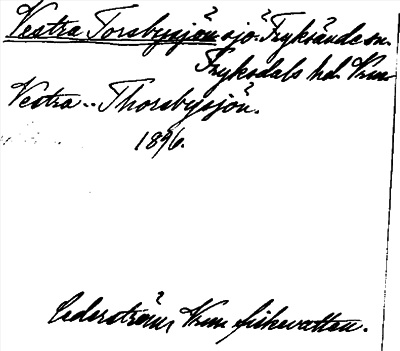 Vestra Torsbysjön sjö i Fryksände sn.
Fryksdals hd. Vrm
Vestra .. Thorsbysjön.
1896.
Cederström, Vrm fiskevatten.